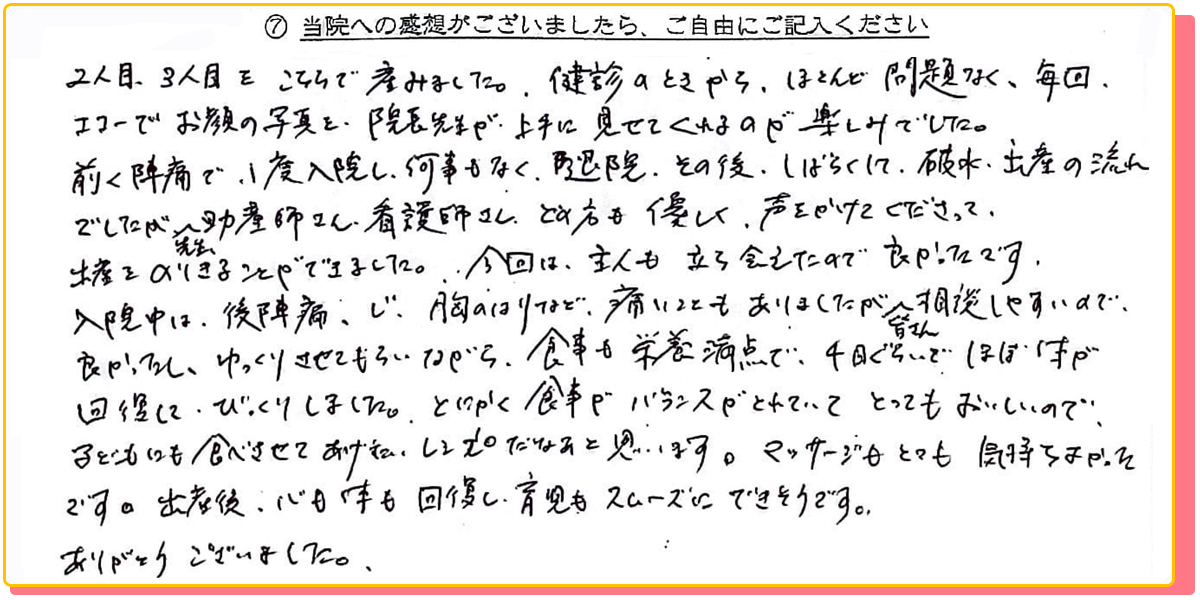 ⑦ 当院への感想がございましたら、ご自由にご記入ください
2人目、3人目を こちらで 産みました。健診のときから、ほとんど 問題なく、毎回、
エコーで お顔の写真を、院長先生が 上手に 見せてくれるのが 楽しみでした。
前く陣痛で、1度入院し、何事もなく、退院、その後、しばらくして、破水、出産の流れ
でしたが、先生、助産師さん、看護師さん、どの方も 優しく、声をかけてくださって、
出産を のりきることができました。今回は、主人も 立ち会えたので 良かったです。
入院中は、後陣痛、胸のはりなど、痛いこともありましたが、皆さん相談しやすいので、
良かったし、ゆっくりさせてもらいながら、食事も 栄養満点で、4日ぐらいで ほぼ体が
回復して、びっくりしました。とにかく 食事が バランスがとれていて とってもおいしいので、
子どもにも 食べさせてあげたい レシピだなあと思います。マッサージもとても 気持ちよかった
です。出産後、心も体も 回復し、育児も スムーズに できそうです。
ありがとう ございました。